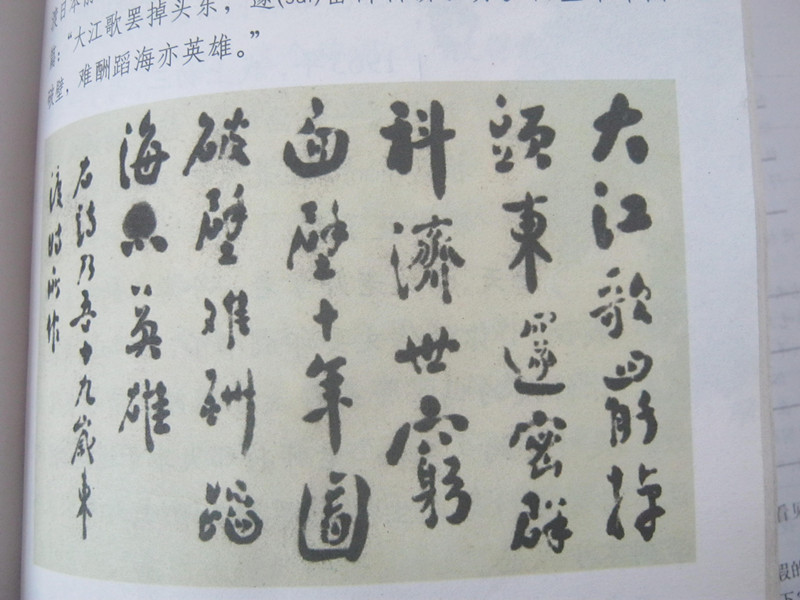 “大江歌罢掉头东，邃(suì)密群科
破壁，难酬蹈海亦英雄。”
大江歌罷掉
頭東邃密群
科濟世窮
面壁十年圖
破壁难酬蹈
海亦英雄
右詩乃吾十九歲東
渡时所作